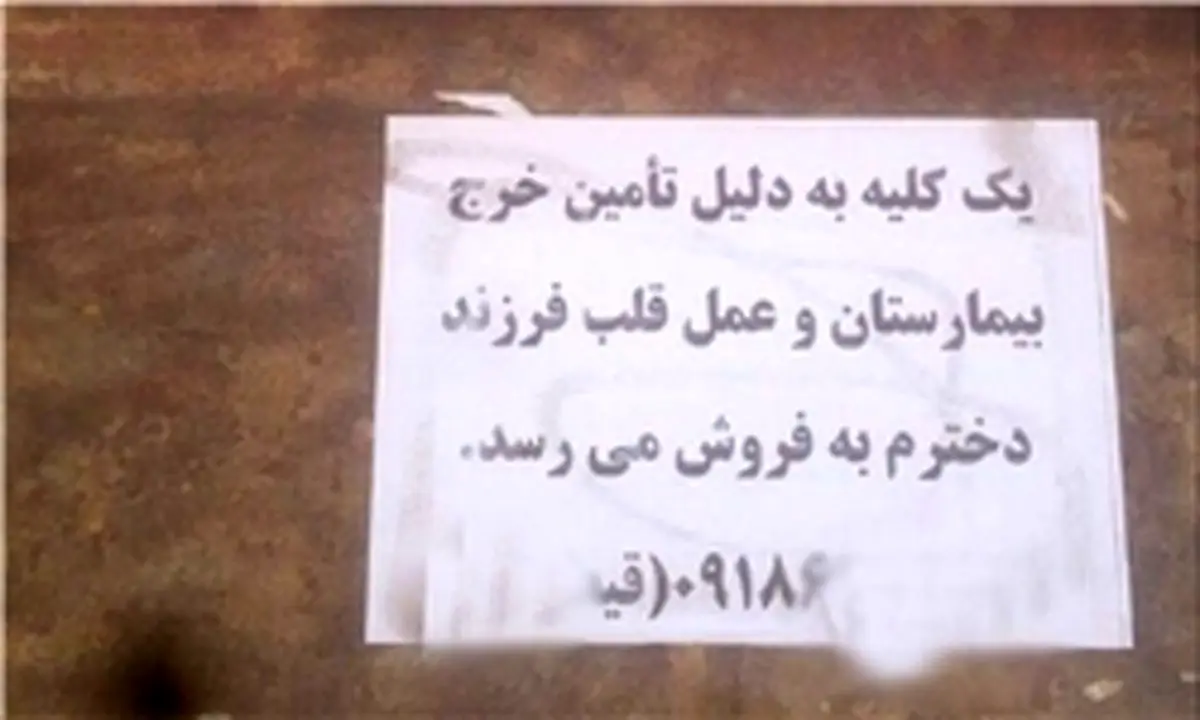 یک کلیه به دلیل تأمین خرج
بیمارستان و عمل قلب فرزند
دخترم به فروش می رسد.
۰۹۱۸۶